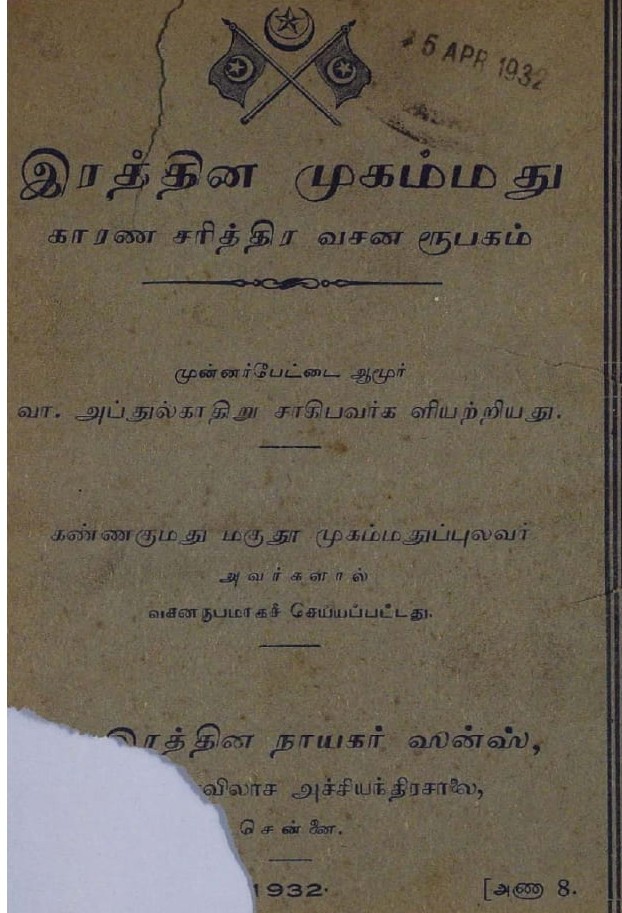 5 APR 1932
இரத்தின முகம்மது
காரண சரித்திர வசன ரூபகம்
முன்னர்பேட்டை ஆமூர்
வா. அப்துல்காதிறு சாகிபவர்க ளியற்றியது.
கண்ணகுமது மகுதூ முகம்மதுப்புலவர்
அவர்களால்
வசனரூபமாகச் செய்யப்பட்டது.
இரத்தின நாயகர் ஸன்ஸ்,
விலாச அச்சியந்திரசாலை,
சென்னை.
1932.
[அணா 8.